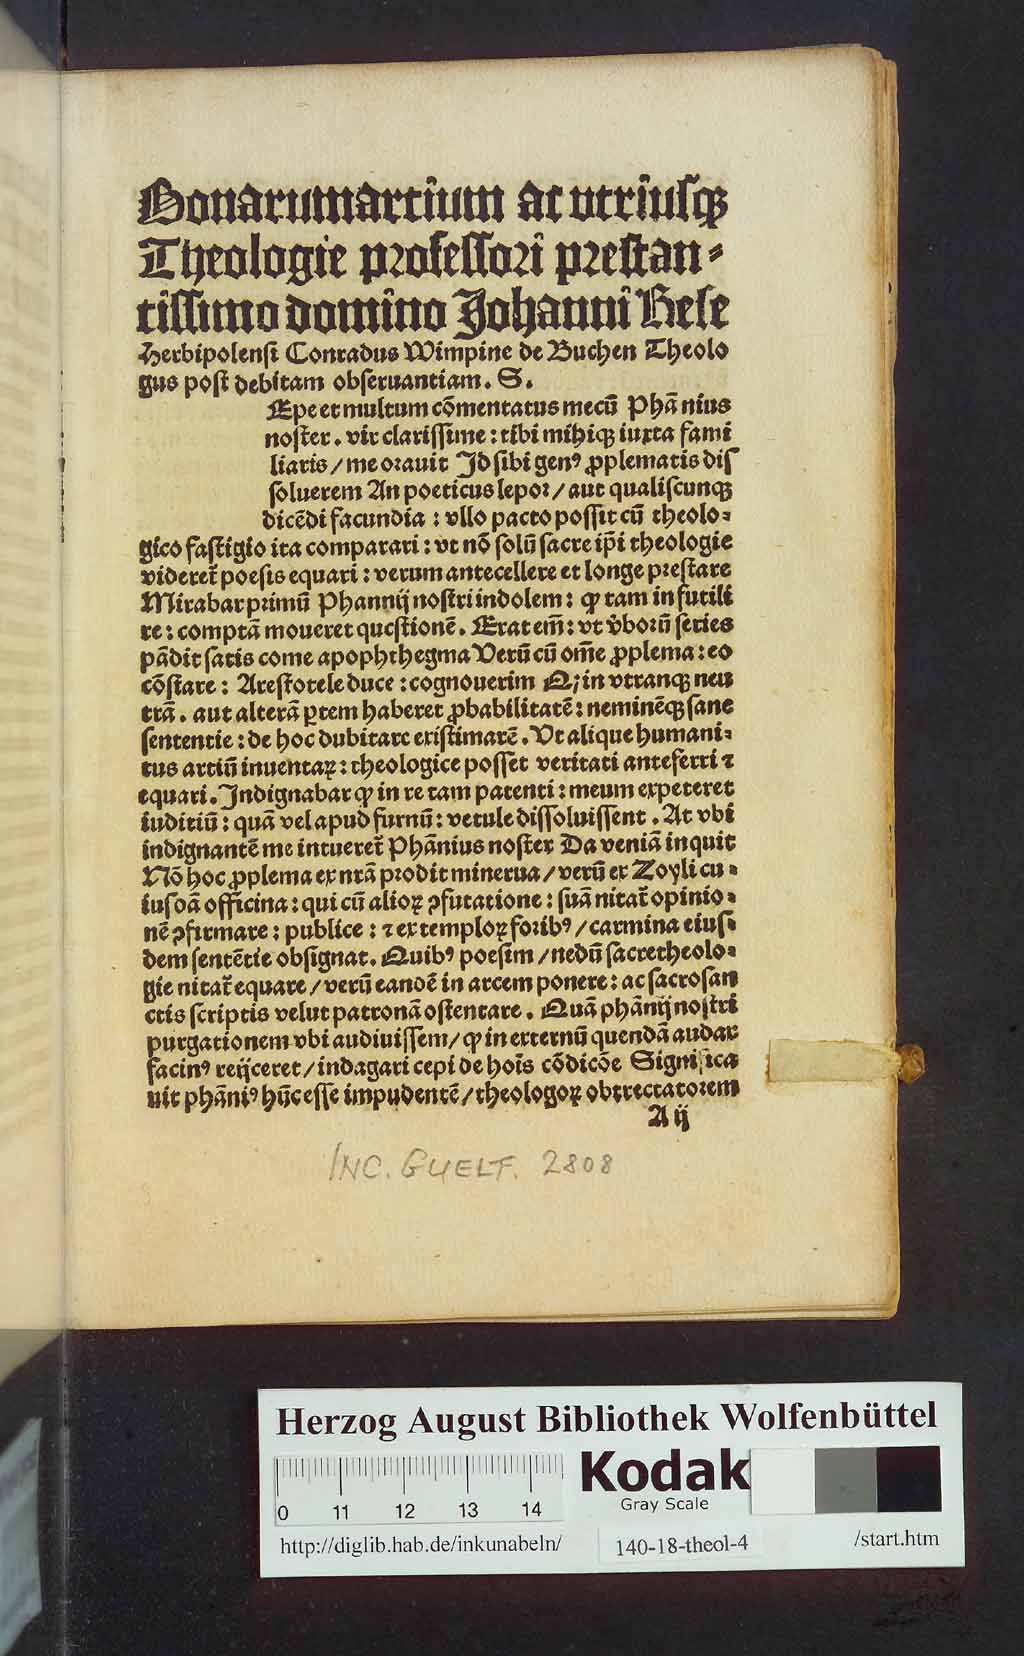 Bonarumartium ac vtriusqꝫ
Theologie professori prestan⸗
tissimo domino Johanni Hese
Herbipolensi Conradus Wimpine de Buchen Theolo
gus post debitam obseruantiam. S.
Epe et multum cōmentatus mecū Phānius
noster. vir clarissime: tibi mihiqꝫ iuxta fami
liaris/ me orauit Id sibi genꝰ ꝓplematis dis
soluerem An poeticus lepor/ aut qualiscunqꝫ
dicēdi facundia: vllo pacto possit cū theolo⸗
gico fastigio ita comparari: vt nō solū sacre ip̄i theologie
videret᷑ poesis equari: verum antecellere et longe prestare
Mirabar primū Phannij nostri indolem: ꝙ tam in futili
re: comptā moueret questionē. Erat em̄: vt v̄borū series
pādit satis come apophthegma Verū cū om̄e ꝓplema: eo
cōstare: Arestotele duce: cognouerim Qꝫ in vtranqꝫ neu
trā. aut alterā ꝑtem haberet ꝓbabilitatē: neminēqꝫ sane
sententie: de hoc dubitare existimarē. Vt alique humani⸗
tus artiū inuentaꝝ: theologice posset veritati anteferri ⁊
equari. Indignabar ꝙ in re tam patenti: meum expeteret
iuditiū: quā vel apud furnū: vetule dissoluissent. At vbi
indignantē me intueret᷑ Phānius noster Da veniā inquit
Nō hoc ꝓplema ex nrā prodit minerua/ verū ex Zoyli cu⸗
iusdā officina: qui cū alioꝝ ꝯfutatione: suā nitat᷑ opinio⸗
nē ꝯfirmare: publice: ⁊ ex temploꝝ foribꝰ/ carmina eius⸗
dem sentētie obsignat. Quibꝰ poesim/ nedū sacretheolo⸗
gie nitat᷑ equare/ verū eandē in arcem ponere: ac sacrosan
ctis scriptis velut patronā ostentare. Quā phānij nostri
purgationem vbi audiuissem/ ꝙ in externū quendā audax
facinꝰ reijceret/ indagari cepi de hoīs cōdicōe Significa
uit phāniꝰ hūc esse impudentē/ theologoꝝ obtrectatorem
A ij
INC. GUELF. 2808
Herzog August Bibliothek Wolfenbüttel
0 11 12 13 14
Kodak
Gray Scale
http://diglib.hab.de/inkunabeln/ 140-18-theol-4 /start.htm